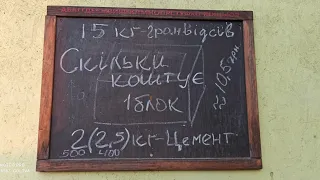 15 кг-гранвідсів
Скільки
коштує
1 блок
105 грн.
2(2,5)кг-цемент
500 400